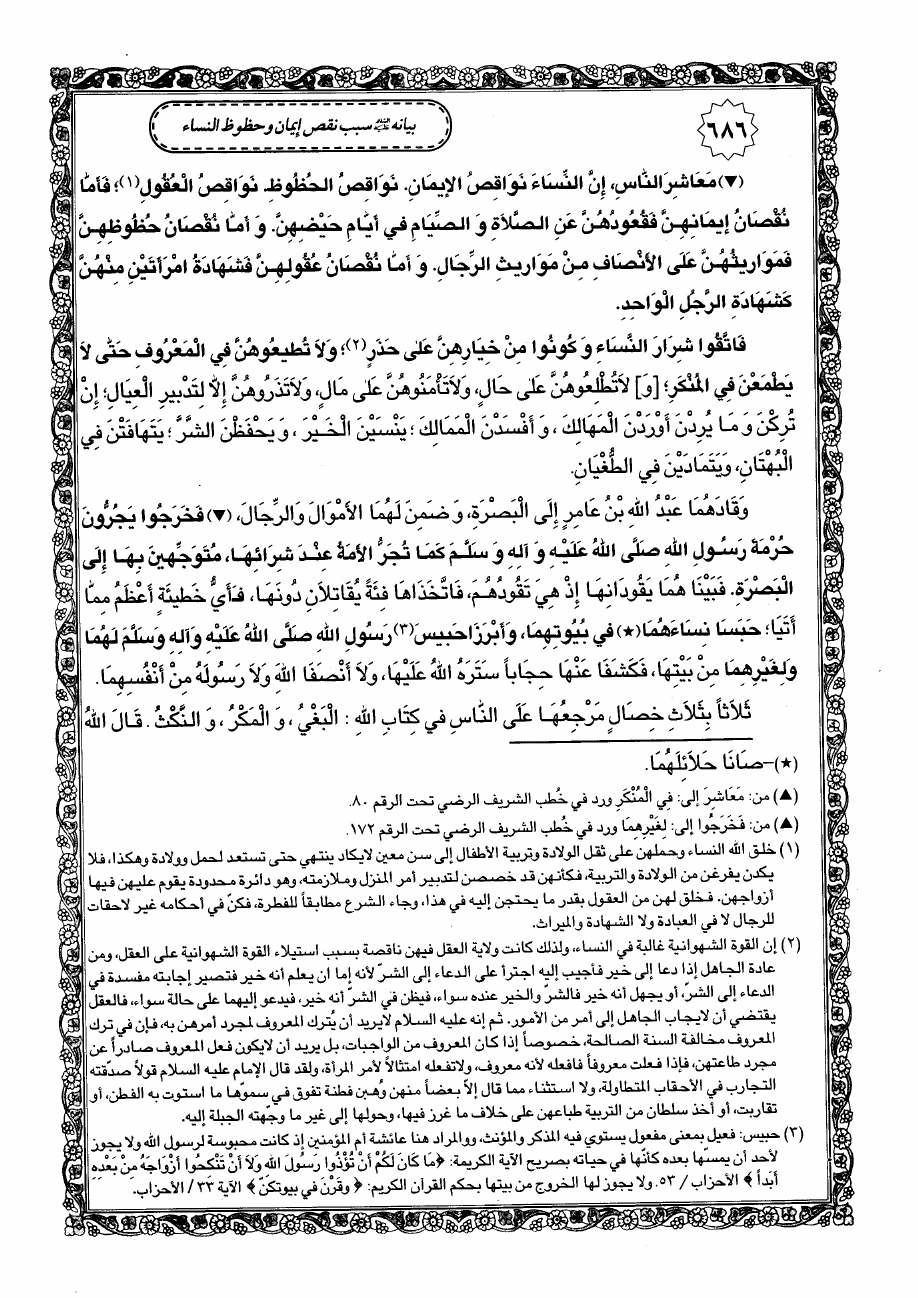 ٦٨٦
بيانه عليه السلام سبب نقص إيمان وحظوظ النساء
(▼) مَعَاشِرَ النَّاسِ، إِنَّ النِّسَاءَ نَوَاقِصُ الإِيمَانِ. نَوَاقِصُ الحُظُوظِ. نَوَاقِصُ الْعُقُولِ(١)؛ فَأَمَّا
نُقْصَانُ إِيمَانِهِنَّ فَقُعُودُهُنَّ عَنِ الصَّلاَةِ وَ الصِّيَامِ في أَيَّامِ حَيْضِهِنَّ. وَ أَمَّا نُقْصَانُ حُظُوظِهِنَّ
فَمَوَارِيثُهُنَّ عَلَى الأَنْصَافِ مِنْ مَوَارِيثِ الرِّجَالِ. وَ أَمَّا نُقْصَانُ عُقُولِهِنَّ فَشَهَادَةُ امْرَأَتَيْنِ مِنْهُنَّ
كَشَهَادَةِ الرَّجُلِ الْوَاحِدِ.
فَاتَّقُوا شِرَارَ النِّسَاءِ وَ كُونُوا مِنْ خِيَارِهِنَّ عَلى حَذَرٍ(٢)؛ وَلاَ تُطيعُوهُنَّ فِي الْمَعْرُوفِ حَتّى لاَ
يَطْمَعْنَ فِي المُنْكَرِ؛ [وَ] لاَتُطْلِعُوهُنَّ عَلى حَالٍ، وَلاَتَأْمَنُوهُنَّ عَلى مَالٍ، وَلاَتَذَرُوهُنَّ إِلاَّ لِتَدْبيرِ الْعِيَالِ؛ إِنْ
تُرِكْنَ وَ مَا يُرِدْنَ أَوْرَدْنَ الْمَهَالِكَ، وَ أَفْسَدْنَ الْمَمَالِكَ؛ يَنْسَيْنَ الْخَيْرَ، وَ يَحْفَظْنَ الشَّرَّ؛ يَتَهَافَتْنَ فِي
الْبُهْتَانِ، وَيَتَمَادَيْنَ فِي الطُّغْيَانِ.
وَقَادَهُمَا عَبْدُ اللهِ بْنُ عَامِرٍ إِلَى الْبَصْرَةِ، وَ ضَمِنَ لَهُمَا الأَمْوَالَ وَالرِّجَالَ، (▼) فَخَرَجُوا يَجُرُّونَ
حُرْمَةَ رَسُولِ اللهِ صَلَّى اللهُ عَلَيْهِ وَ آلِهِ وَ سَلَّمَ كَمَا تُجَرُّ الأَمَةُ عِنْدَ شِرَائِهَا، مُتَوَجِّهينَ بِهَا إِلَى
الْبَصْرَةِ. فَبَيْنَا هُمَا يَقُودَانِهَا إِذْ هِيَ تَقُودُهُمْ، فَاتَّخَذَاهَا فِئَةً يُقَاتِلاَنِ دُونَهَا، فَأَيُّ خَطيئَةٍ أَعْظَمُ مِمَّا
أَتَيَا؛ حَبَسَا نِسَاءَهُمَا(★) في بُيُوتِهِمَا، وَأَبْرَزَا حَبيسَ(٣) رَسُولِ اللهِ صَلَّى اللهُ عَلَيْهِ وَآلِهِ وَسَلَّمَ لَهُمَا
وَلِغَيْرِهِمَا مِنْ بَيْتِهَا، فَكَشَفَا عَنْهَا حِجَاباً سَتَرَهُ اللهُ عَلَيْهَا، وَلاَ أَنْصَفَا اللهَ وَلاَ رَسُولَهُ مِنْ أَنْفُسِهِمَا.
ثَلاَثاً بِثَلاَثِ خِصَالٍ مَرْجِعُهَا عَلَى النَّاسِ في كِتَابِ اللهِ : الْبَغْيُ، وَ الْمَكْرُ، وَ النَّكْثُ. قَالَ اللهُ
(★)-صَانَا حَلاَئِلَهُمَا.
(▲) من: مَعَاشِرَ إلى: فِي الْمُنْكَرِ ورد في خُطب الشريف الرضي تحت الرقم ٨٠.
(▲) من: فَخَرَجُوا إلى: لِغَيْرِهِمَا ورد في خُطب الشريف الرضي تحت الرقم ١٧٢.
(١) خلق الله النساء وحملهن على ثقل الولادة وتربية الأطفال إلى سن معين لايكاد ينتهي حتى تستعد لحمل وولادة وهكذا، فلا
يكدن يفرغن من الولادة والتربية، فكأنهن قد خصصن لتدبير أمر المنزل وملازمته، وهو دائرة محدودة يقوم عليهن فيها
أزواجهن. فخلق لهن من العقول بقدر ما يحتجن إليه في هذا، وجاء الشرع مطابقاً للفطرة، فكنّ في أحكامه غير لاحقات
للرجال لا في العبادة ولا الشهادة والميراث.
(٢) إن القوة الشهوانية غالبة في النساء، ولذلك كانت ولاية العقل فيهن ناقصة بسبب استيلاء القوة الشهوانية على العقل، ومن
عادة الجاهل إذا دعا إلى خير فأجيب إليه اجترأ على الدعاء إلى الشرّ لأنه إما ان يعلم أنه خير فتصير إجابته مفسدة في
الدعاء إلى الشرّ، أو يجهل أنه خير فالشرّ والخير عنده سواء، فيظن في الشرّ أنه خير، فيدعو إليهما على حالة سواء، فالعقل
يقتضي أن لايجاب الجاهل إلى أمر من الأمور. ثم إنه عليه السلام لايريد أن يُترك المعروف لمجرد أمرهن به، فإن في ترك
المعروف مخالفة السنة الصالحة، خصوصاً إذا كان المعروف من الواجبات، بل يريد أن لايكون فعل المعروف صادراً عن
مجرد طاعتهن، فإذا فعلت معروفاً فافعله لأنه معروف، ولاتفعله امتثالاً لأمر المرأة، ولقد قال الإمام عليه السلام قولاً صدّقته
التجارب في الأحقاب المتطاولة، ولا استثناء مما قال إلاّ بعضاً منهن وُهبن فطنة تفوق في سموّها ما استوت به الفطن، أو
تقاربت، أو أخذ سلطان من التربية طباعهن على خلاف ما غرز فيها، وحولها إلى غير ما وجّهته الجبلة إليه.
(٣) حبيس: فعيل بمعنى مفعول يستوي فيه المذكر والمؤنث، ووالمراد هنا عائشة أم المؤمنين إذ كانت محبوسة لرسول الله ولا يجوز
لأحد أن يمسّها بعده كأنّها في حياته بصريح الآية الكريمة: ﴿مَا كَانَ لَكُمْ أَنْ تُؤْذُوا رَسُولَ اللهِ وَلاَ أَنْ تَنْكِحُوا أَزْوَاجَهُ مِنْ بَعْدِهِ
أَبَداً﴾ الأحزاب / ٥٣. ولا يجوز لها الخروج من بيتها بحكم القرآن الكريم: ﴿وقَرْنَ في بيوتكنّ﴾ الآية ٣٣ / الأحزاب.